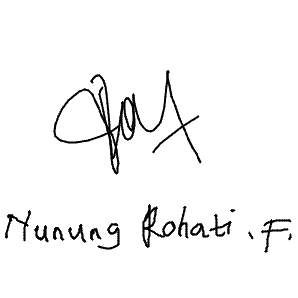 Nunung Rohati .F.